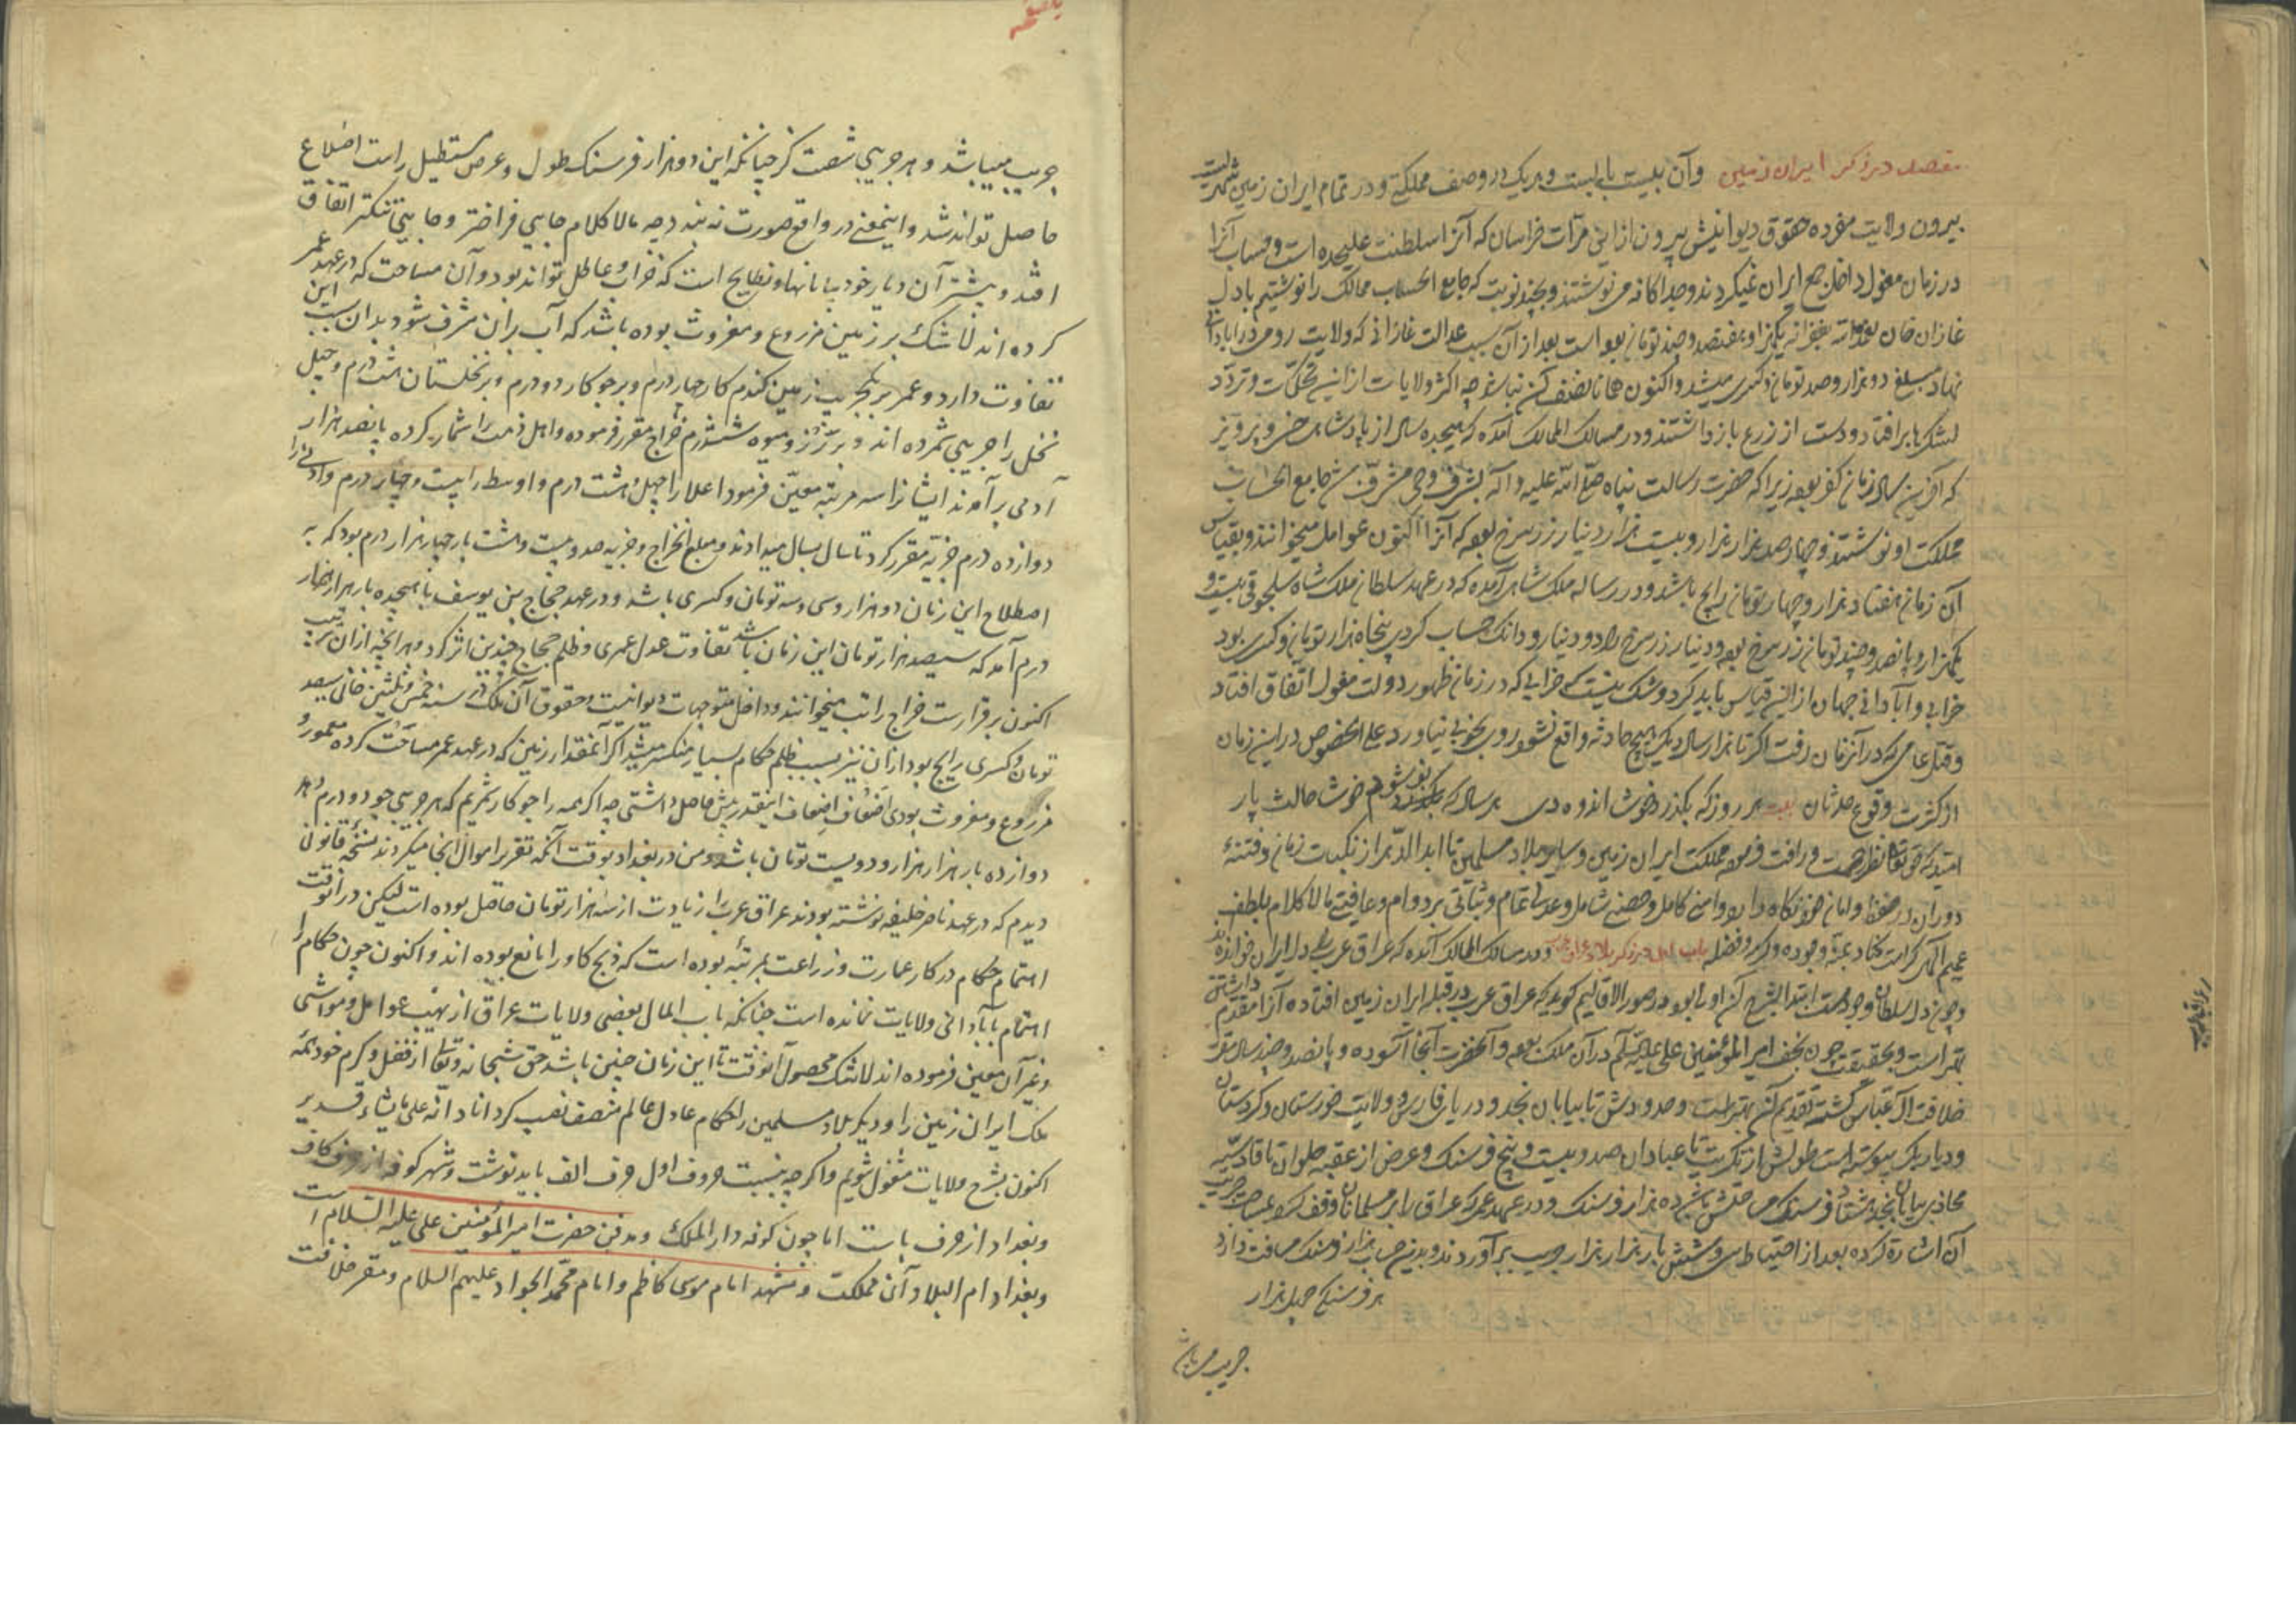 مقصد در ذکر ایران زمین وآن بیست باب است و هر یک در وصف مملکتی و در تمام ایران زمین
بیرون ولایت مفرده حقوق دیوانیش بیرون از این خراسان که آنرا سلطنت علیحده است و حساب آنرا
در زمان مغول داخل جمع ایران نمیکردند و جداگانه می نوشتند و بچند نوبت که جامع الحساب ممالک را نوشتیم با اول
غازان خان یکهزار و هفتصد و چند تومان بوده است بعد از آن بسبب عدالت غازانی که ولایت روی در آبادانی
نهاد بمبلغ دو هزار و صد تومان و کسری میشد و اکنون همانا نصف آن نباشد چه اکثر ولایات از این تحکمات و تردد
لشکرها برافتاد و دست از زرع بازداشتند و در مسالک الممالک آمده که هیجده سال از پادشاهی خسرو پرویز
که آخرین سال زمان کفر بود زیرا که حضرت رسالت پناه صلی الله علیه و آله بشرف وحی مشرف شد جامع الحساب
مملکت او نوشتند و چهارصد هزار هزار و بیست هزار دینار زر سرخ بود که آنرا اکنون عوامل میخوانند و بقیاس
آن زمان هفتاد هزار و چهار تومان رایج باشد و در رساله ملکشاهی آمده که در عهد سلطان ملک شاه سلجوقی بیست و
یکهزار و پانصد و چند تومان زر سرخ بود و دینار زر سرخ را دو دینار و دو دانگ حساب کردی پنجاه هزار تومان و کسری بود
خرابی و آبادانی جهان از این قیاس باید کرد و شک نیست که خرابی که در زمان ظهور دولت مغول اتفاق افتاد
و قتل عامی که در آن زمان رفت اگر تا هزار سال دیگر هیچ حادثه واقع نشود روی بخوبی نیاورد علی الخصوص در این زمان
از کثرت وقوع حدثان بیت هر روز که بگذرد خوشا اندوه دی هر سال که نو شود خوشا حالت پار
امید که حق تعالی نظر رحمت و رأفت مملکت ایران زمین و سایر بلاد مسلمین تا ابد الدهر از نکبات زمان و فتنه
دوران در حفظ و امان خود نگاه دارد و امنی کامل و حصنی شامل و عدلی تمام و ثباتی بر دوام و عافیتی مالا کلام بلطف
عمیم الهی کرامت کناد بمنه وجوده وکرمه وفضله باب اول در ذکر بلاد عراق عرب و در مسالک الممالک آمده که عراق عرب را دل ایران خوانده‌اند
و چون دل سلطان وجود است ابتدا بشرح آن اولی بود و در صور الاقالیم گوید که عراق عرب در قبله ایران زمین افتاده آنرا مقدم داشتن
بهتر است و بحقیقت چون نجف امیر المؤمنین علی علیه السلم در آن ملک بود و آنحضرت آنجا آسوده و پانصد و چند سال مقر
خلافت آل عباس گشته تقدیم آن بهتر است وحدودش تا بیابان نجد و دریای فارس و ولایت خوزستان و کردستان
و دیار بکر پیوسته است طولش از تکریت تا عبادان صد و بیست و پنج فرسنگ و عرض از عقبه حلوان تا قادسیه
محاذی بیابان نجد هشتاد فرسنگ مساحتش ده هزار فرسنگ و در عهد عمر که عراق را بر مسلمانان وقف
آن اشارة کرده بعد از احتیاط سی و شش بار هزار هزار جریب برآوردند و بدین حساب هزار فرسنک مسافت دارد
هر فرسنگی چهل هزار
جریب می باشد
جریب میباشد و هر جریبی شصت گز چنانکه این دو هزار فرسنک طول و عرض مستطیل راست اضلاع
حاصل تواند شد و اینمعنی در واقع صورت نه بندد چه مالا کلام جایی فراختر و جایی تنکتر اتفاق
افتد و بیشتر آن دیار خود بیابانها و بطایح است که خراب و عاطل تواند بود و آن مساحت که در عهد عمر
کرده اند لاشک بر زمین مزروع و مغروث بوده باشد که آب بر آن مشرف شود بدان سبب این
تفاوت دارد و عمر بر یکجریب زمین کندم کار چهار درم و بر جو کار دو درم و بر نخلستان هشت درم و چهل
نخل را جریبی شمرده اند و بر رز و میوه شش درم خراج مقرر فرموده و اهل ذمت را شمار کرده پانصد هزار
آدمی برآمدند ایشانرا سه مرتبه معین فرمود اعلا را چهل و هشت درم و اوسط را بیست و چهار درم و ادنی را
دوازده درم جزیه مقرر کرد تا سال بسال میدادند و مبلغ الخراج و جزیه صد و بیست و هشت بار چهار هزار درم بود که به
اصطلاح این زمان دو هزار و سی و سه تومان و کسری باشد و در عهد حجاج بن یوسف با هیجده بار هزار هزار
درم آمد که سیصد هزار تومان این زمان باشد تفاوت عدل عمری و ظلم حجاج چندین اثر کرد و هر آنچه از آن
اکنون برقرار است خراج راتب میخوانند و داخل متوجهات دیوانیست و حقوق آن ملک در سنه خمس و ثلثین خانی سیصد
تومان و کسری رایج بود از آن نیز بسبب ظلم حکام بسیار منکسر میشد اکر آنمقدار زمین که در عهد عمر مساحت کرده معمور و
مزروع و مغروث بودی اضعاف اضعاف اینقدر بیش حاصل داشتی چه اکر همه را جو کار شمریم که هر جریبی جو دو درم دهد
دوازده بار هزار هزار و دویست تومان باشد و من در بغداد بوقت آنکه تقریر اموال آنجا میکردند نسخه قانونی
دیدم که در عهد ناصر خلیفه نوشته بودند عراق عرب را زیادت از سه هزار تومان حاصل بوده است لیکن در آنوقت
اهتمام حکام در کار عمارت و زراعت بمرتبه بوده است که ذبح کاو را مانع بوده اند و اکنون چون حکام را
اهتمام بآبادانی ولایات نمانده است چنانکه باب المال بعضی ولایات عراق از نهب عوامل و مواشی
و غیر آن معین فرموده اند لاشک محصول آنوقت تا این زمان چنین باشد حق سبحانه و تعالی از فضل و کرم خود همه
ملک ایران زمین را و دیکر بلاد مسلمین را حکام عادل عالم منصف نصب کرداناد انه علی ما یشاء قدیر
اکنون بشرح ولایات مشغول شویم و اگرچه بنسبت حروف اول حرف الف باید نوشت و شهر کوفه از حرف کاف
و بغداد از حرف باست اما چون کوفه دار الملک و مدفن حضرت امیر المؤمنین علی علیه السلام است
و بغداد ام البلاد آن مملکت و مشهد امام موسی کاظم و امام محمد الجواد علیهم السلام و مقر خلافت